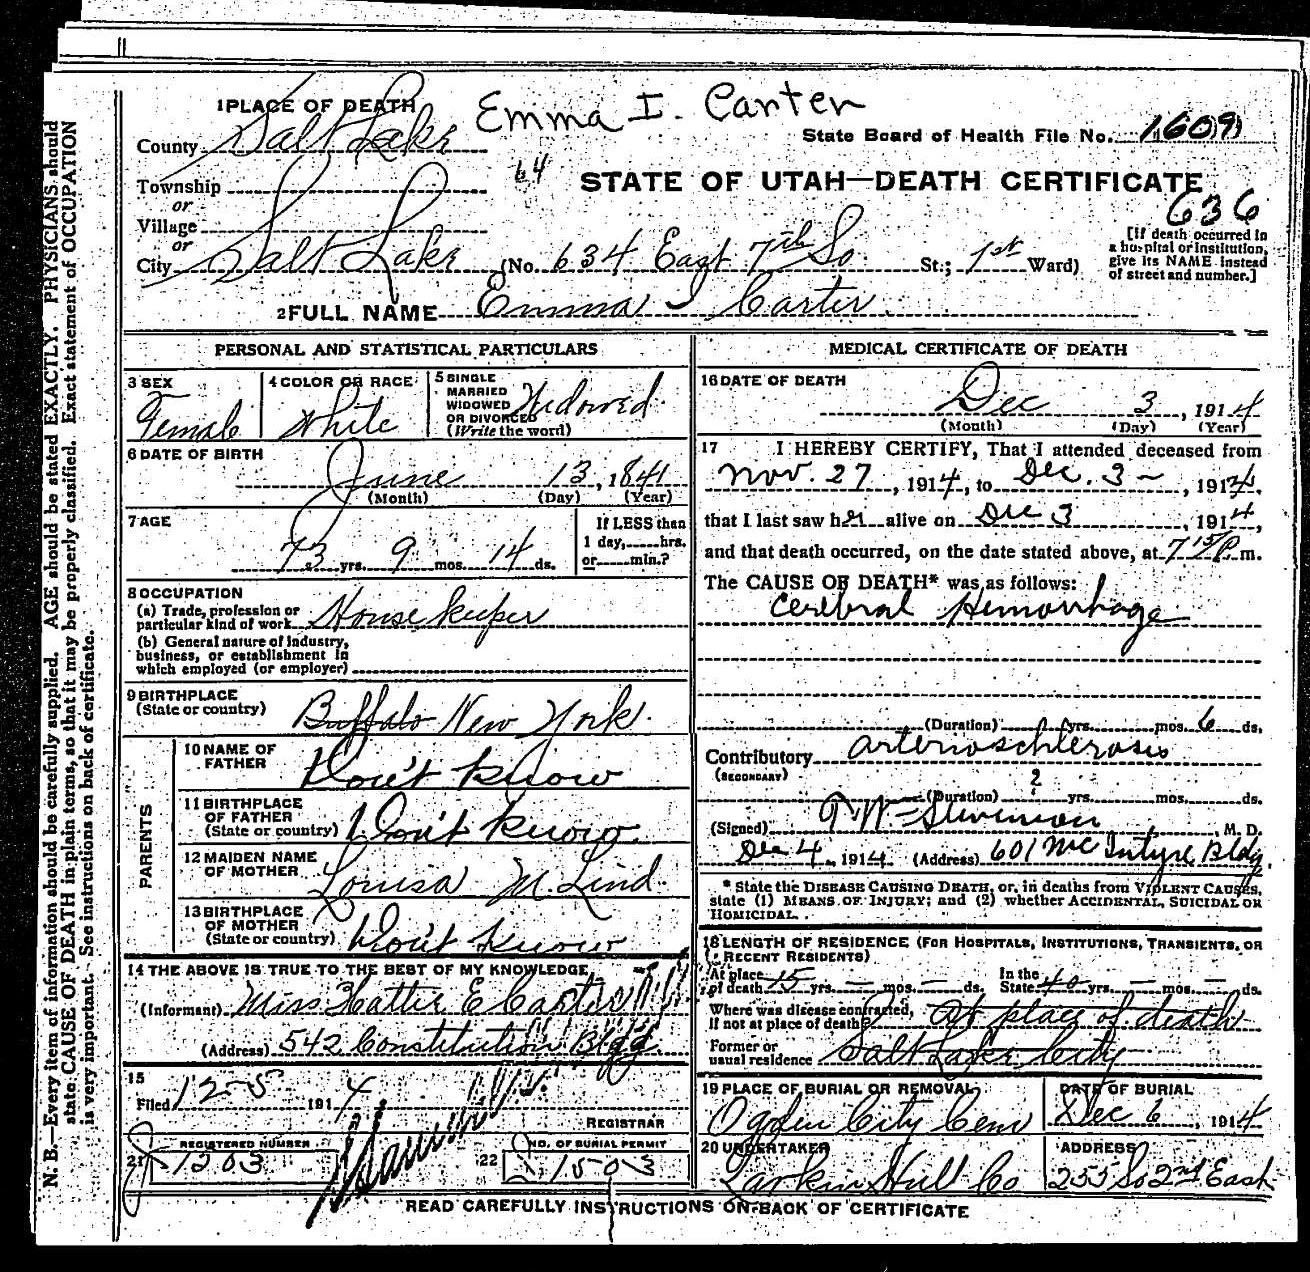 Emma I. Carter
1 PLACE OF DEATH
County Salt Lake
State Board of Health File No. 1609
64
STATE OF UTAH—DEATH CERTIFICATE
Township
or
Village
or
City Salt Lake (No. 634 East 7th So St.; 1st Ward)
636
[If death occurred in
a hospital or institution,
give its NAME instead
of street and number.]
2 FULL NAME Emma I Carter
PERSONAL AND STATISTICAL PARTICULARS
3 SEX
Female
4 COLOR OR RACE
White
5 SINGLE
MARRIED
WIDOWED
OR DIVORCED
(Write the word)
Widowed
6 DATE OF BIRTH
June 13, 1841
(Month) (Day) (Year)
7 AGE
73 yrs. 9 mos. 14 ds.
If LESS than
1 day, hrs.
or min.?
8 OCCUPATION
(a) Trade, profession or
particular kind of work House keeper
(b) General nature of industry,
business, or establishment in
which employed (or employer)
9 BIRTHPLACE
(State or country)
Buffalo New York.
PARENTS
10 NAME OF
FATHER
Don't know
11 BIRTHPLACE
OF FATHER
(State or country)
Don't know
12 MAIDEN NAME
OF MOTHER
Louisa M. Lind
13 BIRTHPLACE
OF MOTHER
(State or country)
Don't know
14 THE ABOVE IS TRUE TO THE BEST OF MY KNOWLEDGE
(Informant) Miss Hattie E Carter
(Address) 542 Constitution Bldg
15
Filed 12-5 1914
REGISTRAR
21
REGISTERED NUMBER
1203
22
NO. OF BURIAL PERMIT
1503
MEDICAL CERTIFICATE OF DEATH
16 DATE OF DEATH
Dec 3, 1914
(Month) (Day) (Year)
17 I HEREBY CERTIFY, That I attended deceased from
Nov. 27, 1914, to Dec. 3 – , 1914,
that I last saw her alive on Dec 3, 1914,
and that death occurred, on the date stated above, at 7 15 P m.
The CAUSE OF DEATH* was as follows:
Cerebral Hemorrhage
(Duration) yrs. mos. 6 ds.
Contributory arterioschlerosis
(SECONDARY)
(Duration) ? yrs. mos. ds.
(Signed) Stevenson, M. D.
Dec 4, 1914 (Address) 601 McIntyre Bldg.
* State the DISEASE CAUSING DEATH, or, in deaths from VIOLENT CAUSES,
state (1) MEANS OF INJURY; and (2) whether ACCIDENTAL, SUICIDAL OR
HOMICIDAL.
18 LENGTH OF RESIDENCE (FOR HOSPITALS, INSTITUTIONS, TRANSIENTS, OR
RECENT RESIDENTS)
At place
of death 15 yrs. — mos. — ds.
In the
State 40 yrs. — mos. — ds.
Where was disease contracted,
if not at place of death? At place of death
Former or
usual residence Salt Lake City
19 PLACE OF BURIAL OR REMOVAL
Ogden City Cem
DATE OF BURIAL
Dec 6, 1914
20 UNDERTAKER
Larkin Hull Co
ADDRESS
255 So 2nd East
READ CAREFULLY INSTRUCTIONS ON BACK OF CERTIFICATE
N. B.—Every item of information should be carefully supplied. AGE should be stated EXACTLY. PHYSICIANS should
state CAUSE OF DEATH in plain terms, so that it may be properly classified. Exact statement of OCCUPATION
is very important. See instructions on back of certificate.